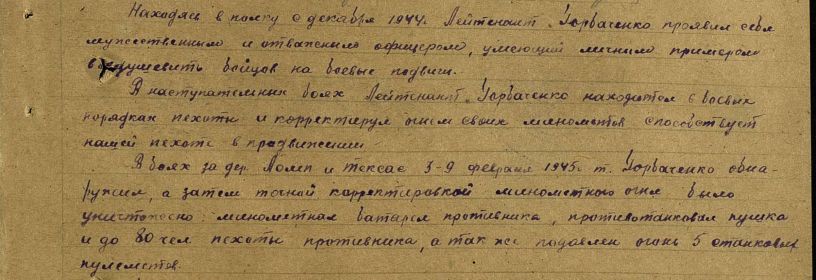 Находясь в полку с декабря 1944. Лейтенант Горбаченко проявил себя
мужественным и отважным офицером, умеющий личным примером
воодушевить бойцов на боевые подвиги.
В наступательных боях Лейтенант Горбаченко находится в боевых
порядках пехоты и корректируя огнем своих минометов способствует
нашей пехоте в продвижении
В боях за дер. и 3-9 февраля 1945г т. Горбаченко обна-
ружил, а затем точной корректировкой минометного огня было
уничтожено: минометная батарея противника, противотанковая пушка
и до 80 чел пехоты противника, а так же подавлен огонь 5 станковых
пулеметов.